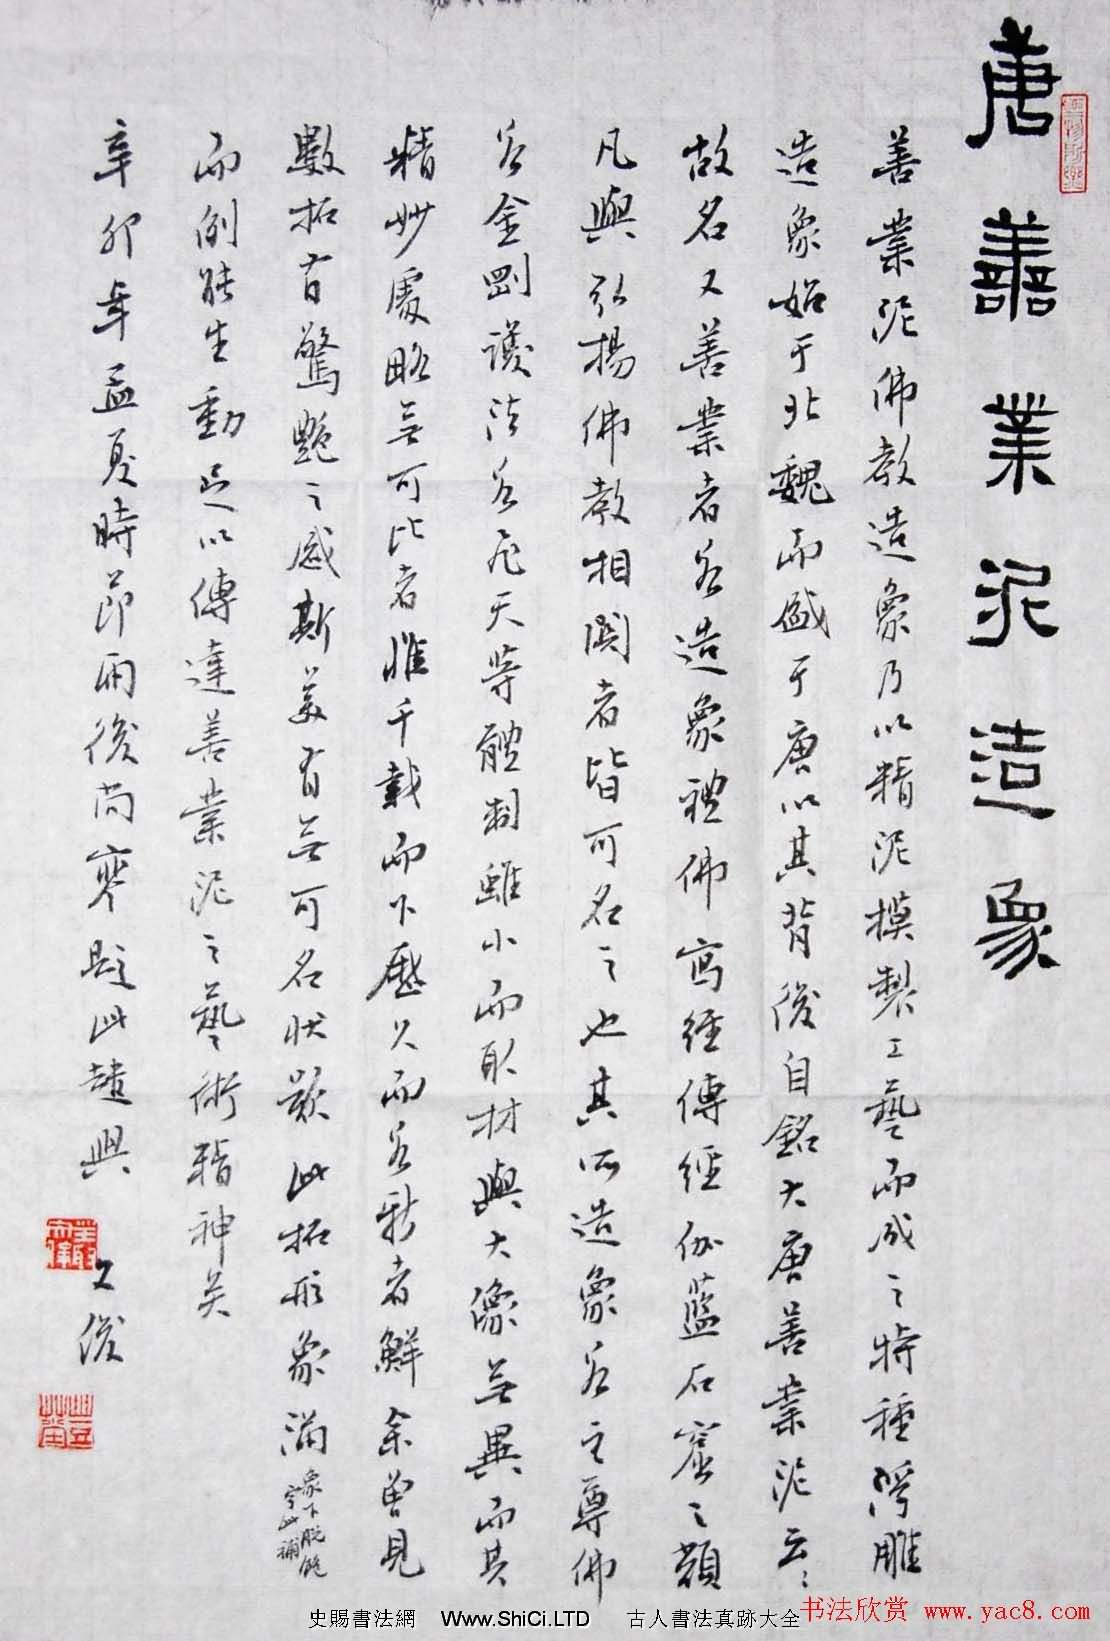 唐善業泥造象
善業泥佛教造象乃以精泥模製工藝而成之特種浮雕
造象始于北魏而盛于唐以其背後自銘大唐善業泥云云
故名又善業者若造象禮佛寫經傳經伽藍石窟之類
凡與弘揚佛教相関者皆可名之也其所造象若主尊佛
若金剛護法若飛天等體制雖小而取材與大像無異而其
精妙處略無可比者惟千載而下歷久而若新者鮮余曾見
數拓有驚艷之感斯美有無可名狀歟此拓形象滿
象下脫飽
字此補
而例能生動足以傳達善業泥之藝術精神矣
辛卯年孟夏時節雨後尚齋題此遣興
文俊
史賜書法網 WWW.ShiCi.LTD 古人書法真跡大全
书法欣赏 www.yac8.com